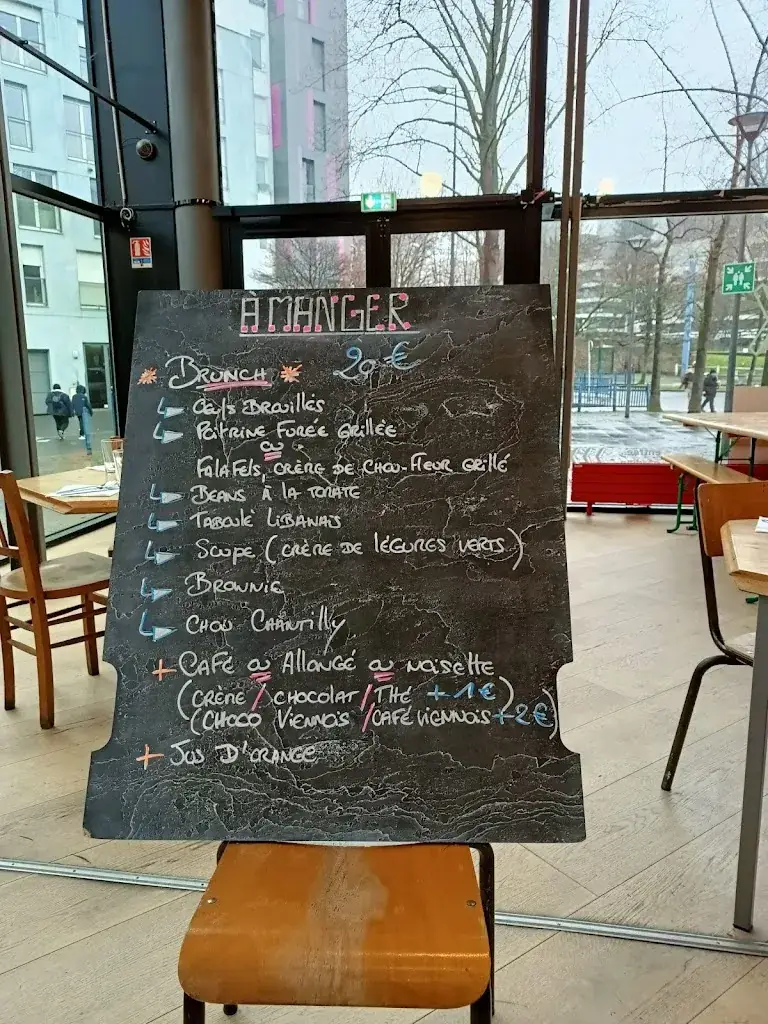 À MANGER
BRUNCH 20 €
Oeufs Brouillés
Poitrine Fumée Grillée
ou
Falafels, crème de chou-fleur grillé
Beans à la tomate
Taboulé Libanais
Soupe (crème de légumes verts)
Brownie
Chou Chantilly
+ Café ou Allongé ou noisette
(crème / chocolat / Thé + 1€)
(choco viennois / café viennois + 2€)
+ Jus d'orange